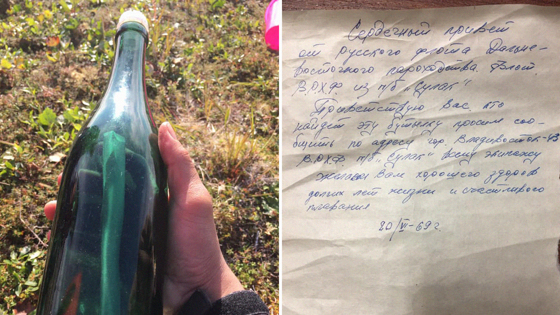 Сердечный привет
от русского флота Дальне-
восточного пароходства. Флот
ВРХФ из п/б "Сулак"
Приветствую Вас, кто
найдет эту бутылку просим соо-
бщить по адресу гор. Владивосток-43
ВРХФ п/б "Сулак" всему экипажу
желаем Вам хорошего здоровья
долгих лет жизни и счастливого
плавания
20/VI-69г.